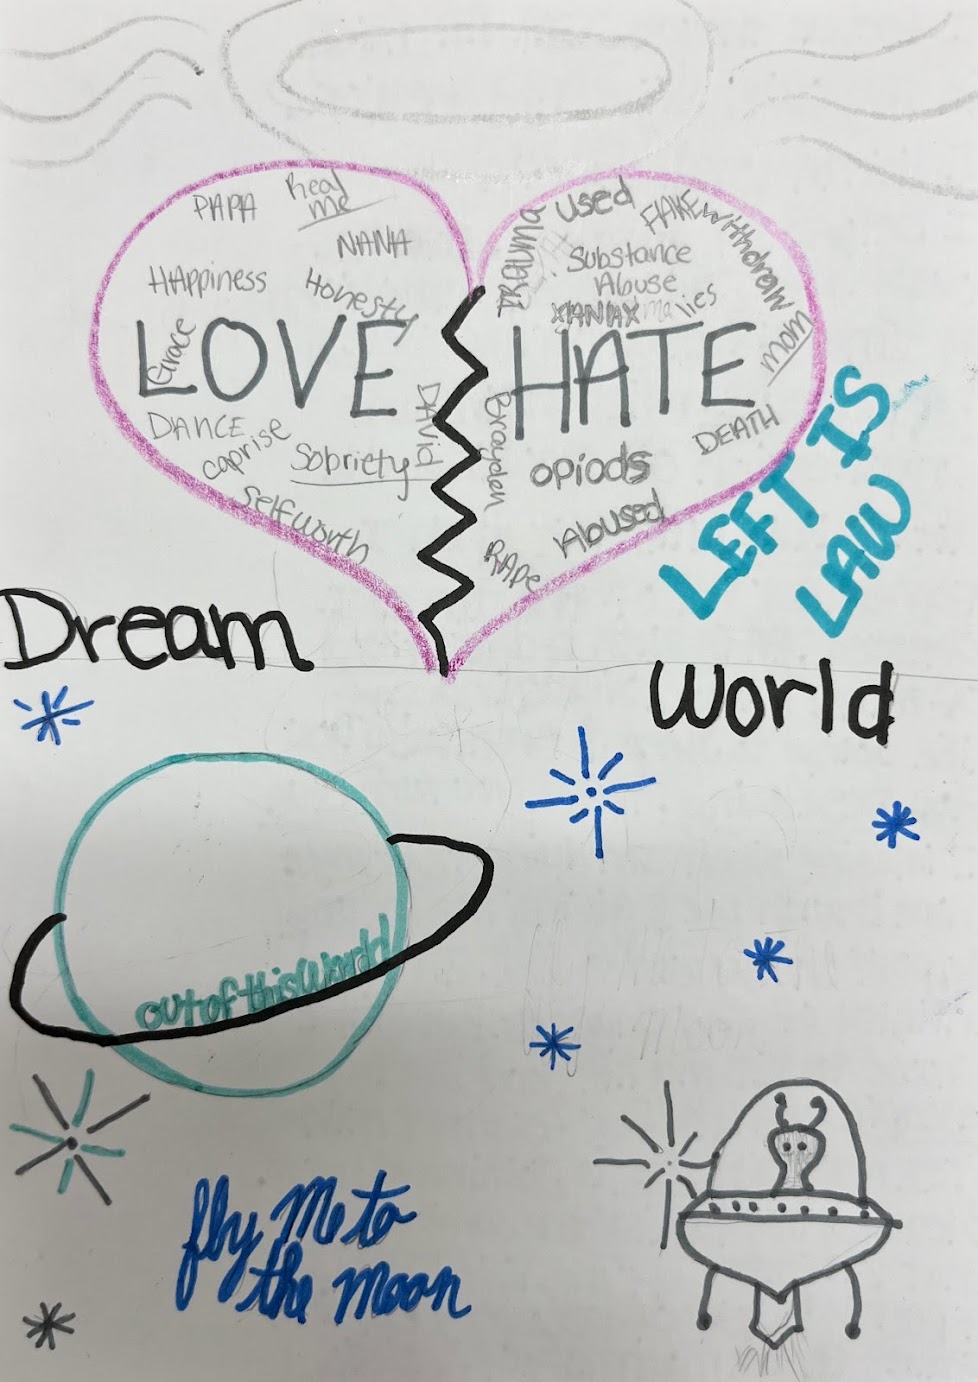 PAPA
Real
me
NANA
HAppiness
Honesty
Grace
LOVE
DANCE
caprise
Sobriety
DAVid
Self worth
TRAUMA
used
FAKE
withdraw
Substance
Abuse
XANAX
lies
HATE
mom
Brayden
DEATH
opiods
Abused
RApe
LEFT IS
LAW
Dream
World
out of this World
fly Me to
the moon